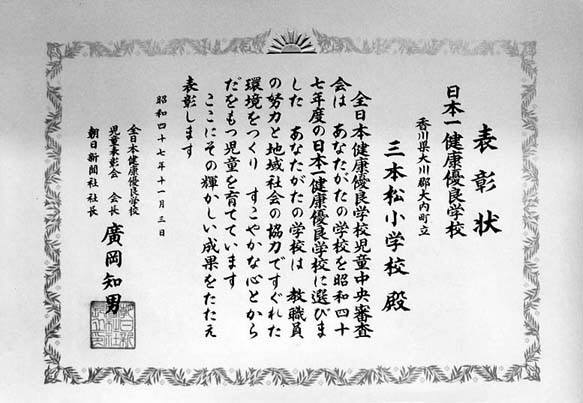 表彰状
日本一健康優良学校
香川県大川郡大内町立
三本松小学校殿
全日本健康優良学校児童中央審査
会は あなたがたの学校を昭和四十
七年度の日本一健康優良学校に選びま
した あなたがたの学校は 教職員
の努力と地域社会の協力ですぐれた
環境をつくり すこやかな心とから
だをもつ児童を育てています
ここにその輝かしい成果をたたえ
表彰します
昭和四十七年十一月三日
全日本健康優良学校
児童表彰会 会長
朝日新聞社 社長
廣岡知男